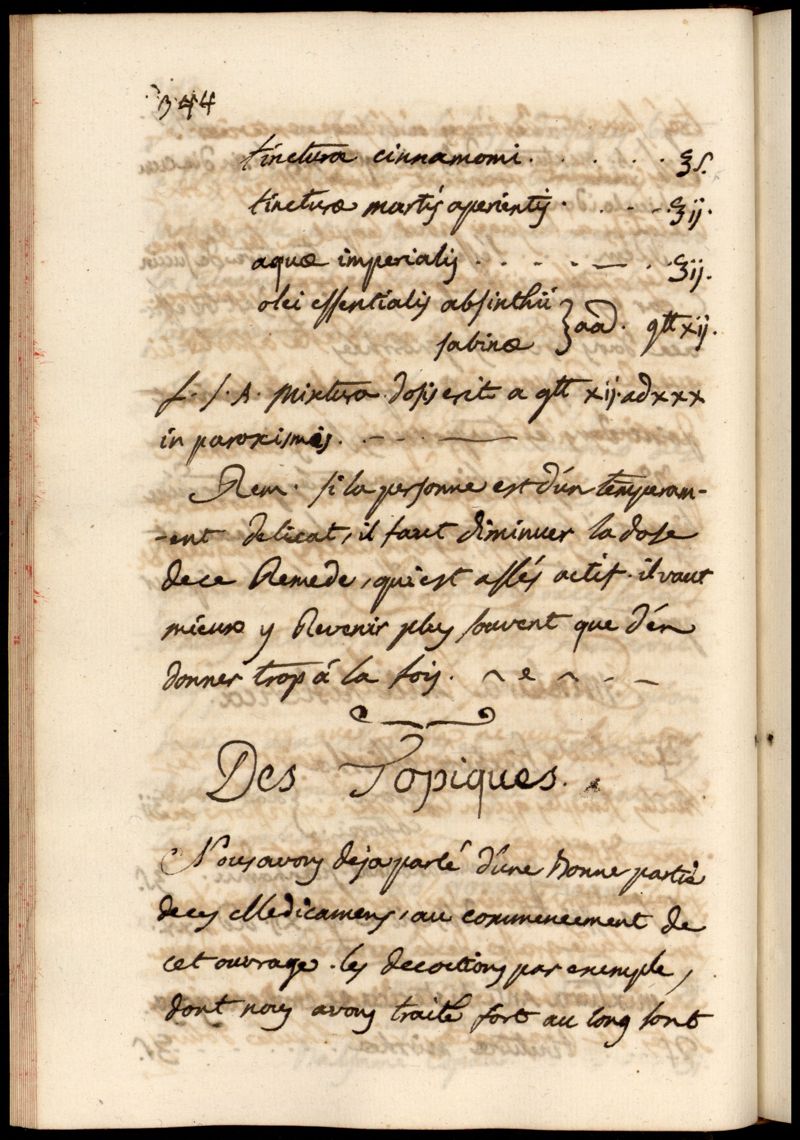 344
tinctura cinnamomi. . . . . . ℥ſ.
tincturæ martis aperientis . . - - . ℥ij.
aquæ imperialis . . - - . — . ℥ij.
olei essentialis absinthii
sabinæ } aad. gtt xij.
f. s. A. mixtura dosis erit a gtt xij. ad xxx
in paroximis. - - ——
Rem. si la personne est d'un temperam-
-ent delicat, il faut diminuer la dose
de ce Remede, qui est assés actif. il vaut
mieux y Revenir plus souvent que d'en
donner trop á la fois.
Des Topiques.
Nous avons deja parlé d'une bonne partie
de ces Medicamens, au commencement de
cet ouvrage. les decoctions par exemple,
dont nous avons traité fort au long sont